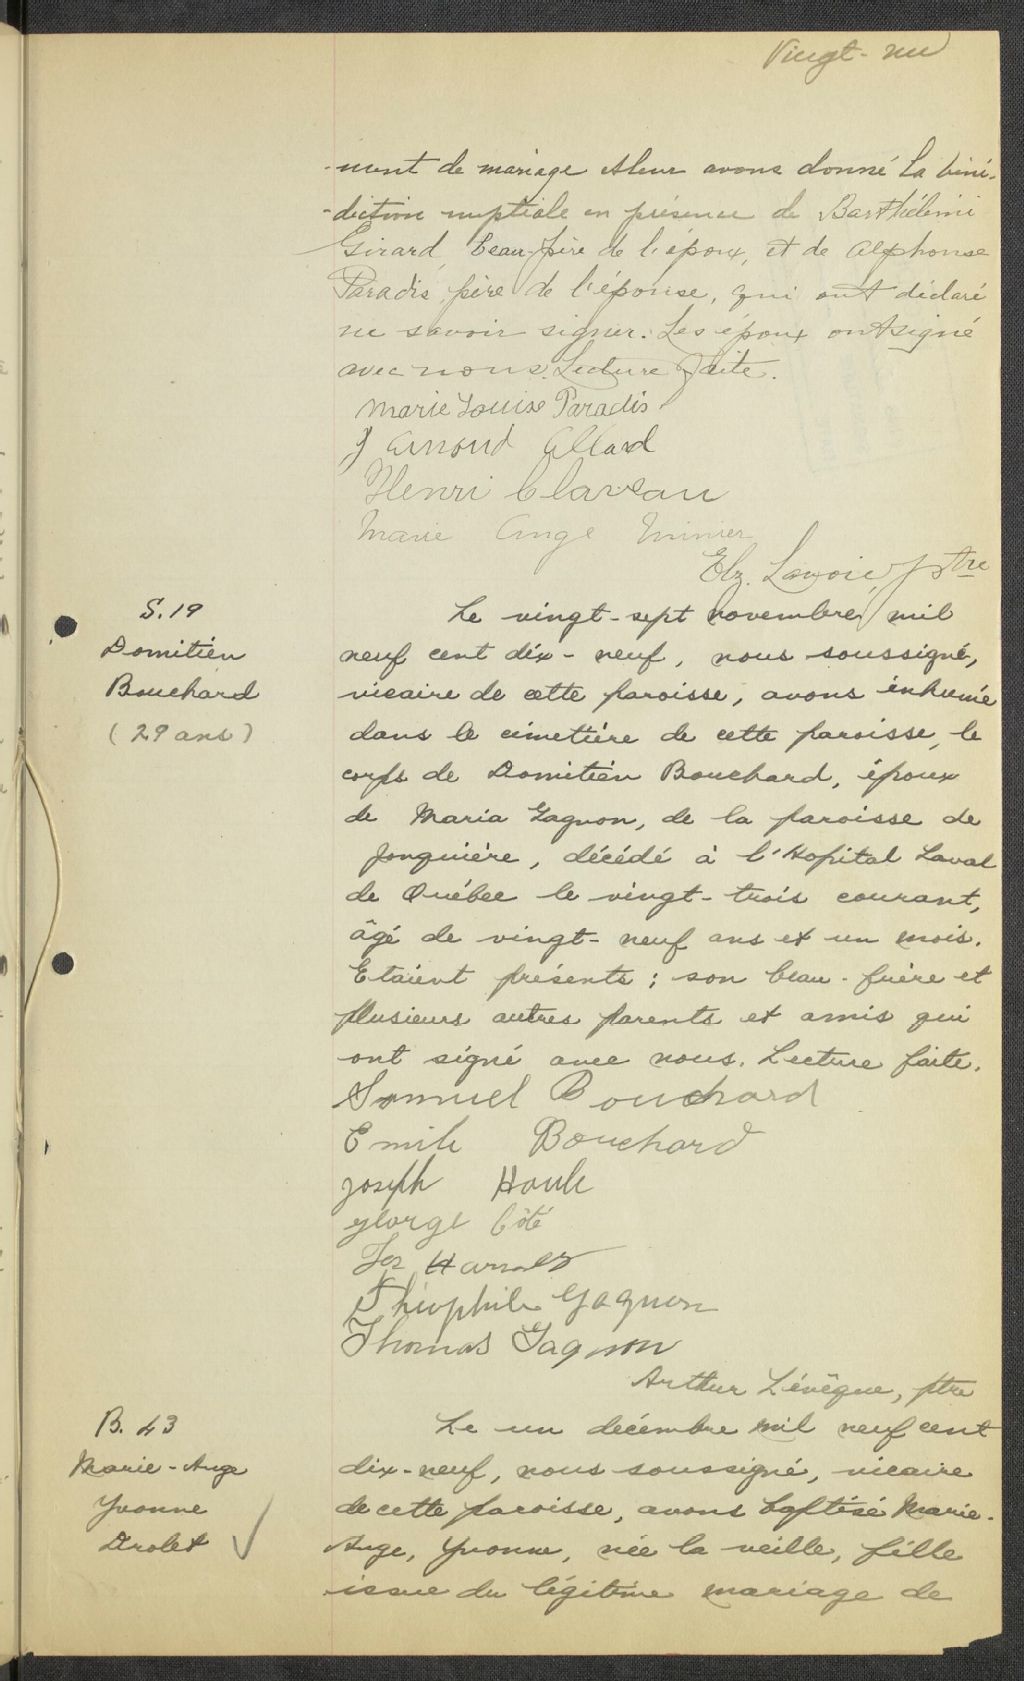 Vingt-un
-ment de mariage et leur avons donné la béné-
-diction nuptiale en présence de Barthélémi
Girard, beau-père de l'époux, et de Alphonse
Paradis, père de l'épouse, qui ont déclaré
ne savoir signer. Les époux ont signé
avec nous. Lecture faite.
Marie Louise Paradis
J Arnoud Allard
Henri Claveau
Marie Ange
Elz. Lavoie, ptre
S. 19
Domitien
Bouchard
(29 ans)
Le vingt-sept novembre mil
neuf cent dix-neuf, nous soussigné,
vicaire de cette paroisse, avons inhumé
dans le cimetière de cette paroisse, le
corps de Domitien Bouchard, époux
de Maria Gagnon, de la paroisse de
Jonquière, décédé à l'Hopital Laval
de Québec le vingt-trois courant,
âgé de vingt-neuf ans et un mois.
Etaient présents ; son beau-frère et
plusieurs autres parents et amis qui
ont signé avec nous. Lecture faite.
Samuel Bouchard
Emile Bouchard
Joseph Houle
George Côté
Jos
Théophile Gagnon
Thomas Gagnon
Arthur Lévêque, ptre
B. 43
Marie-Ange
Yvonne
Drolet
Le un décembre mil neuf cent
dix-neuf, nous soussigné, vicaire
de cette paroisse, avons baptisé Marie-
Ange, Yvonne, née la veille, fille
issue du légitime mariage de